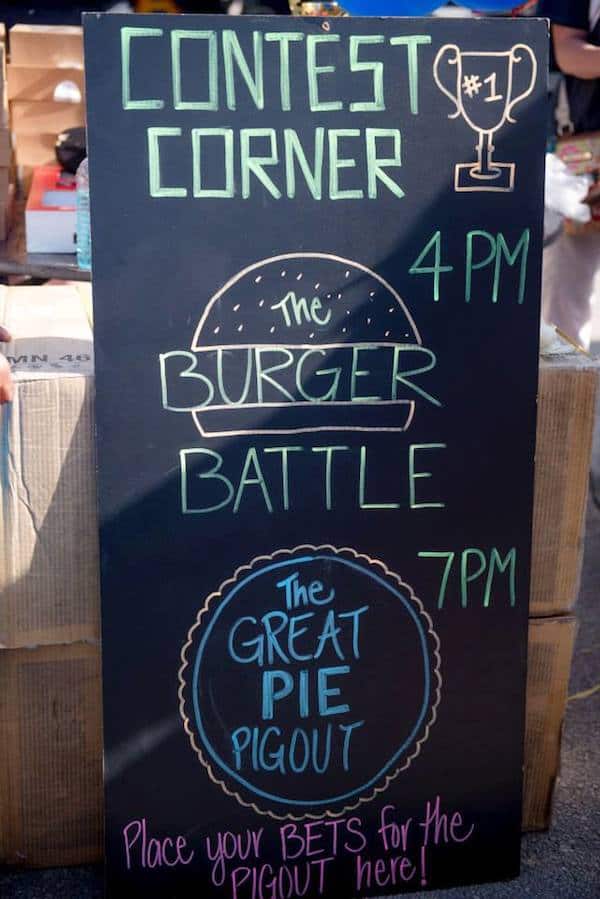 CONTEST
CORNER
#1
4 PM
The
BURGER
BATTLE
7PM
The
GREAT
PIE
PIGOUT
Place your BETS for the
PIGOUT here!
MN 46